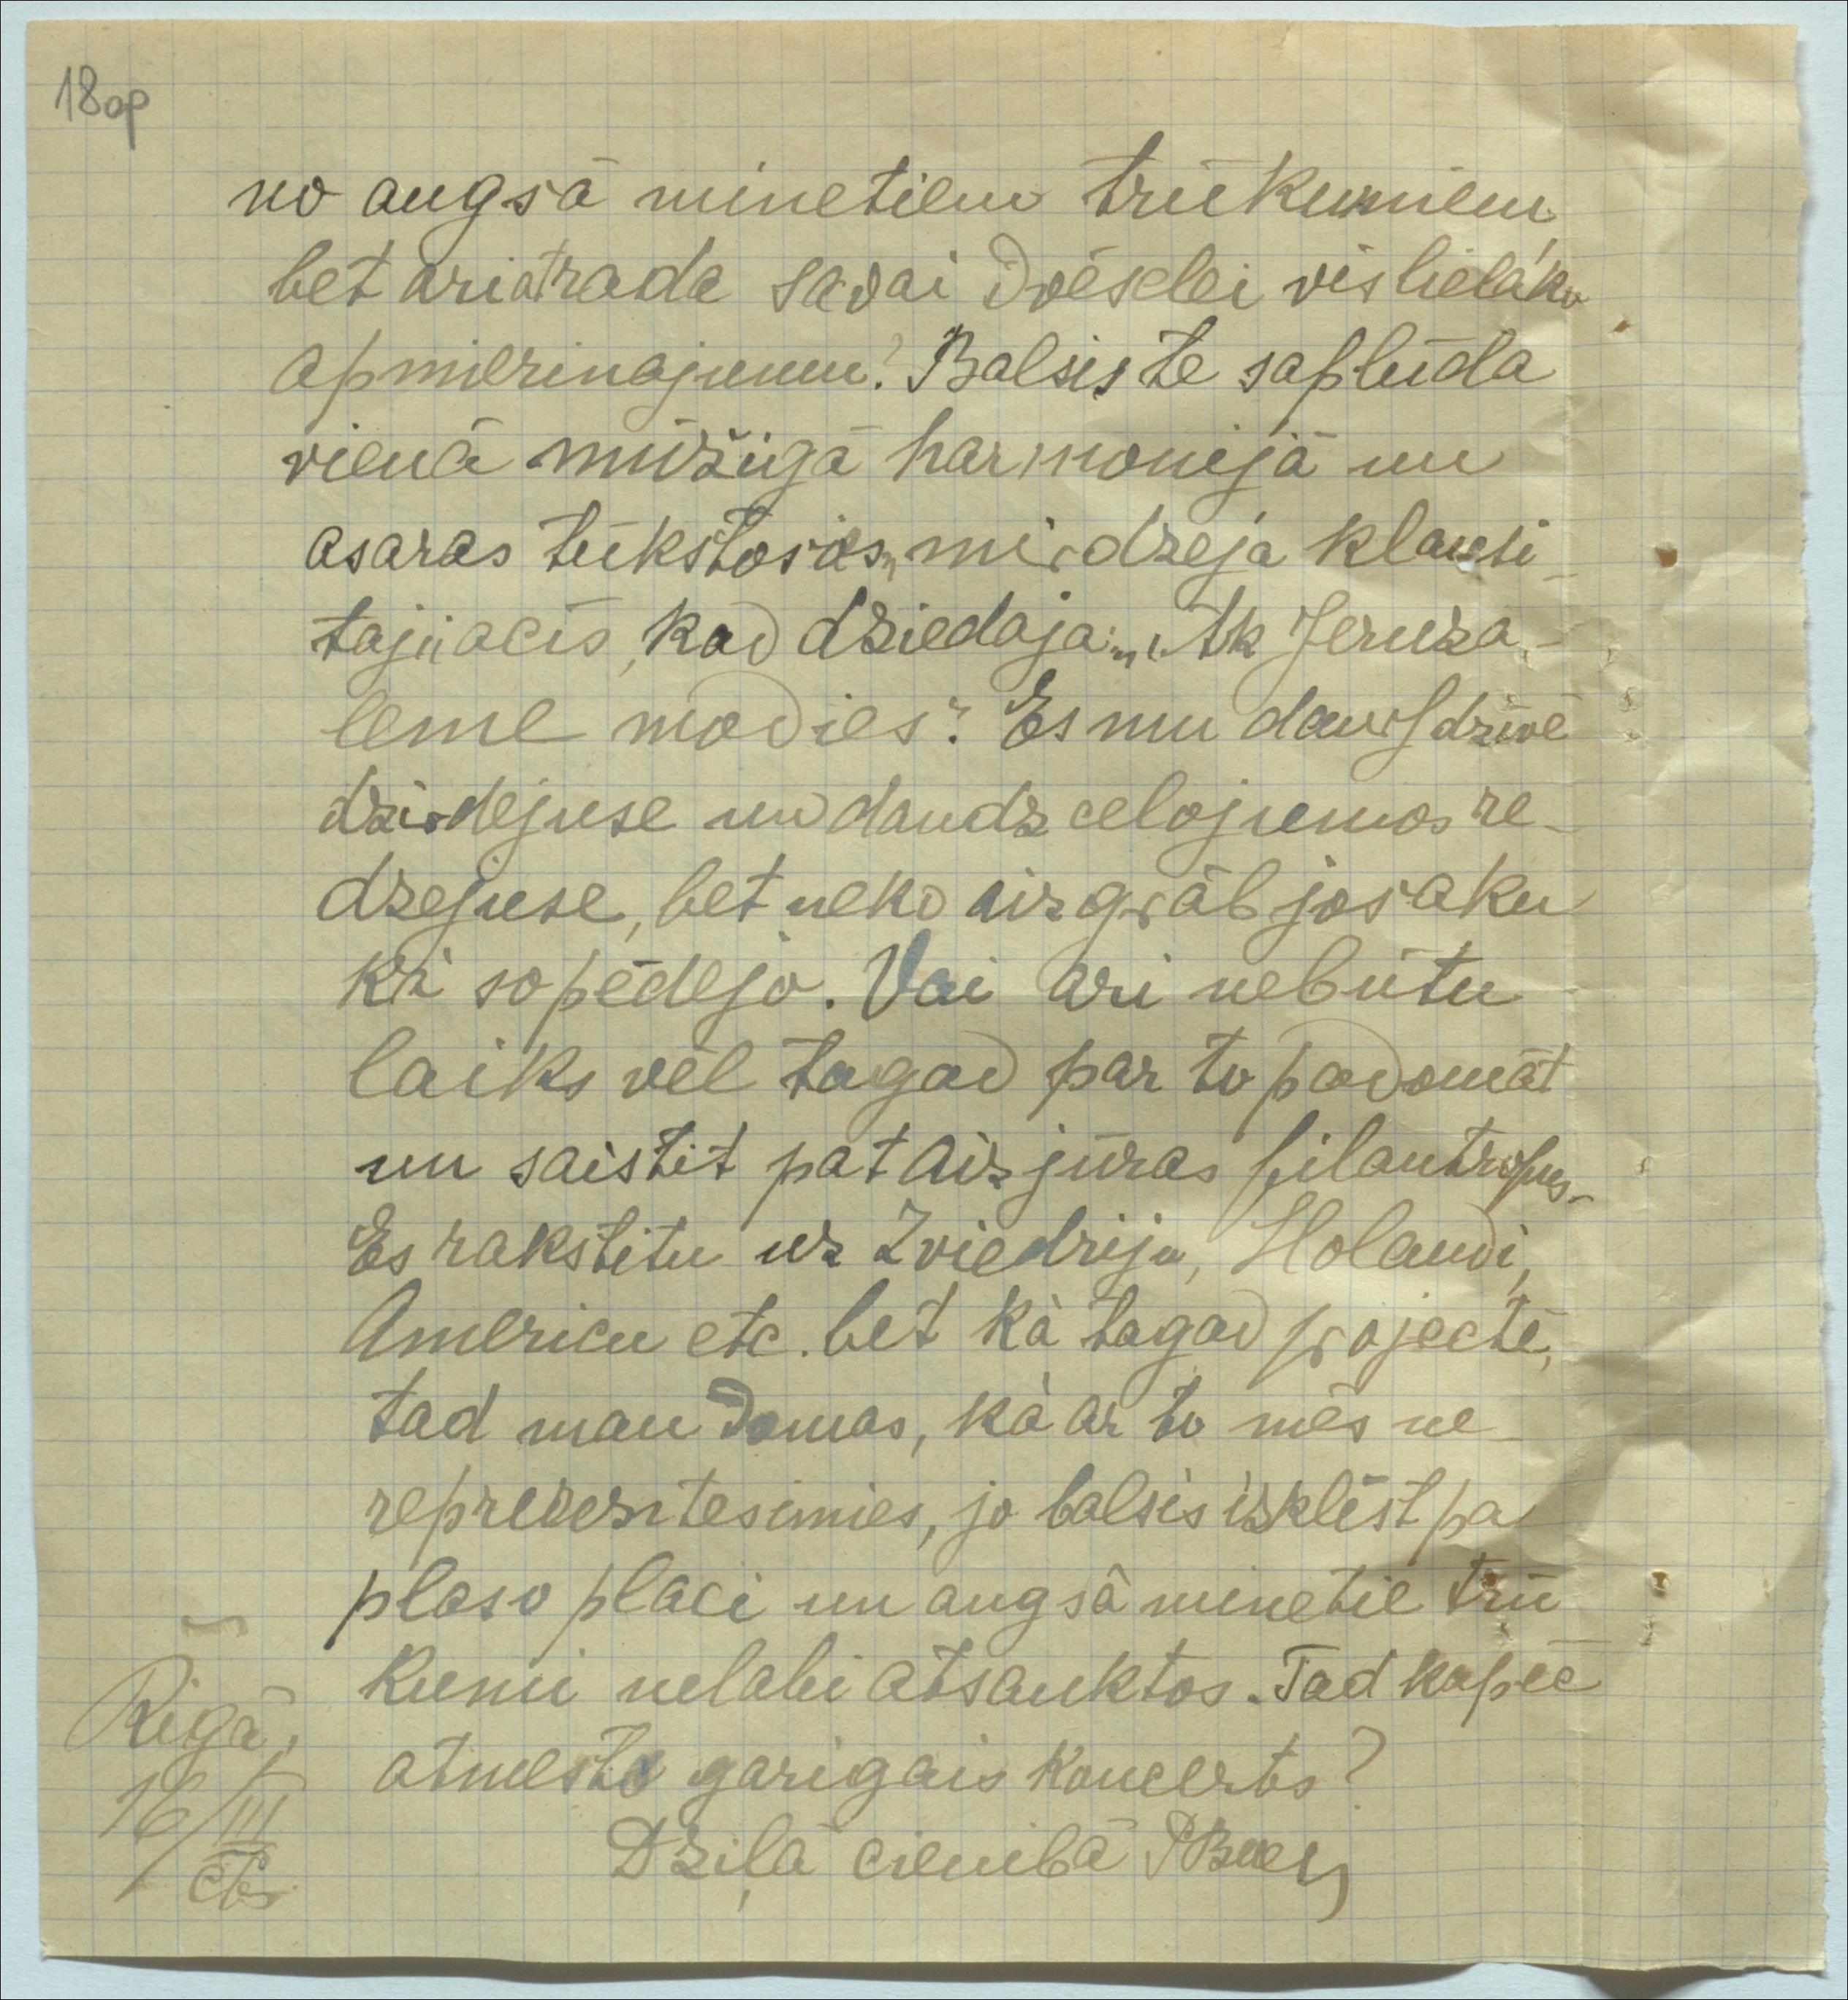 18op
no augsā minetiem trūkumiem
bet ari atrada savai dvēselei vislielāko
apmierinajumu? Balsis te saplūda
vienā mūžigā harmonijā un
asaras tūkstosās mirdzeja klausi-
tajū acis, kad dziedaja: „Ak Jeruza-
leme modies". Esmu daudz dzīvē
dzirdejuse un daudz celojumos re-
dzejuse, bet neko aizgrābjosaku
kā so pēdejo. Vai ari nebūtu
laiks vēl tagad par to padomāt
un saistit pat aizjūras filantropus.
Es rakstitu uz Zviedriju, Holandi,
Americu etc. bet kā tagad projectē,
tad man domas, kā ar to mēs ne-
reprezentesimies, jo balsis izklīst pa
plaso placi un augsā minetie trū
kumi nelabi atsauktos. Tad kapēc
atmests garigais koncerts?
Dziļā cienibā
Rigā,
16/III